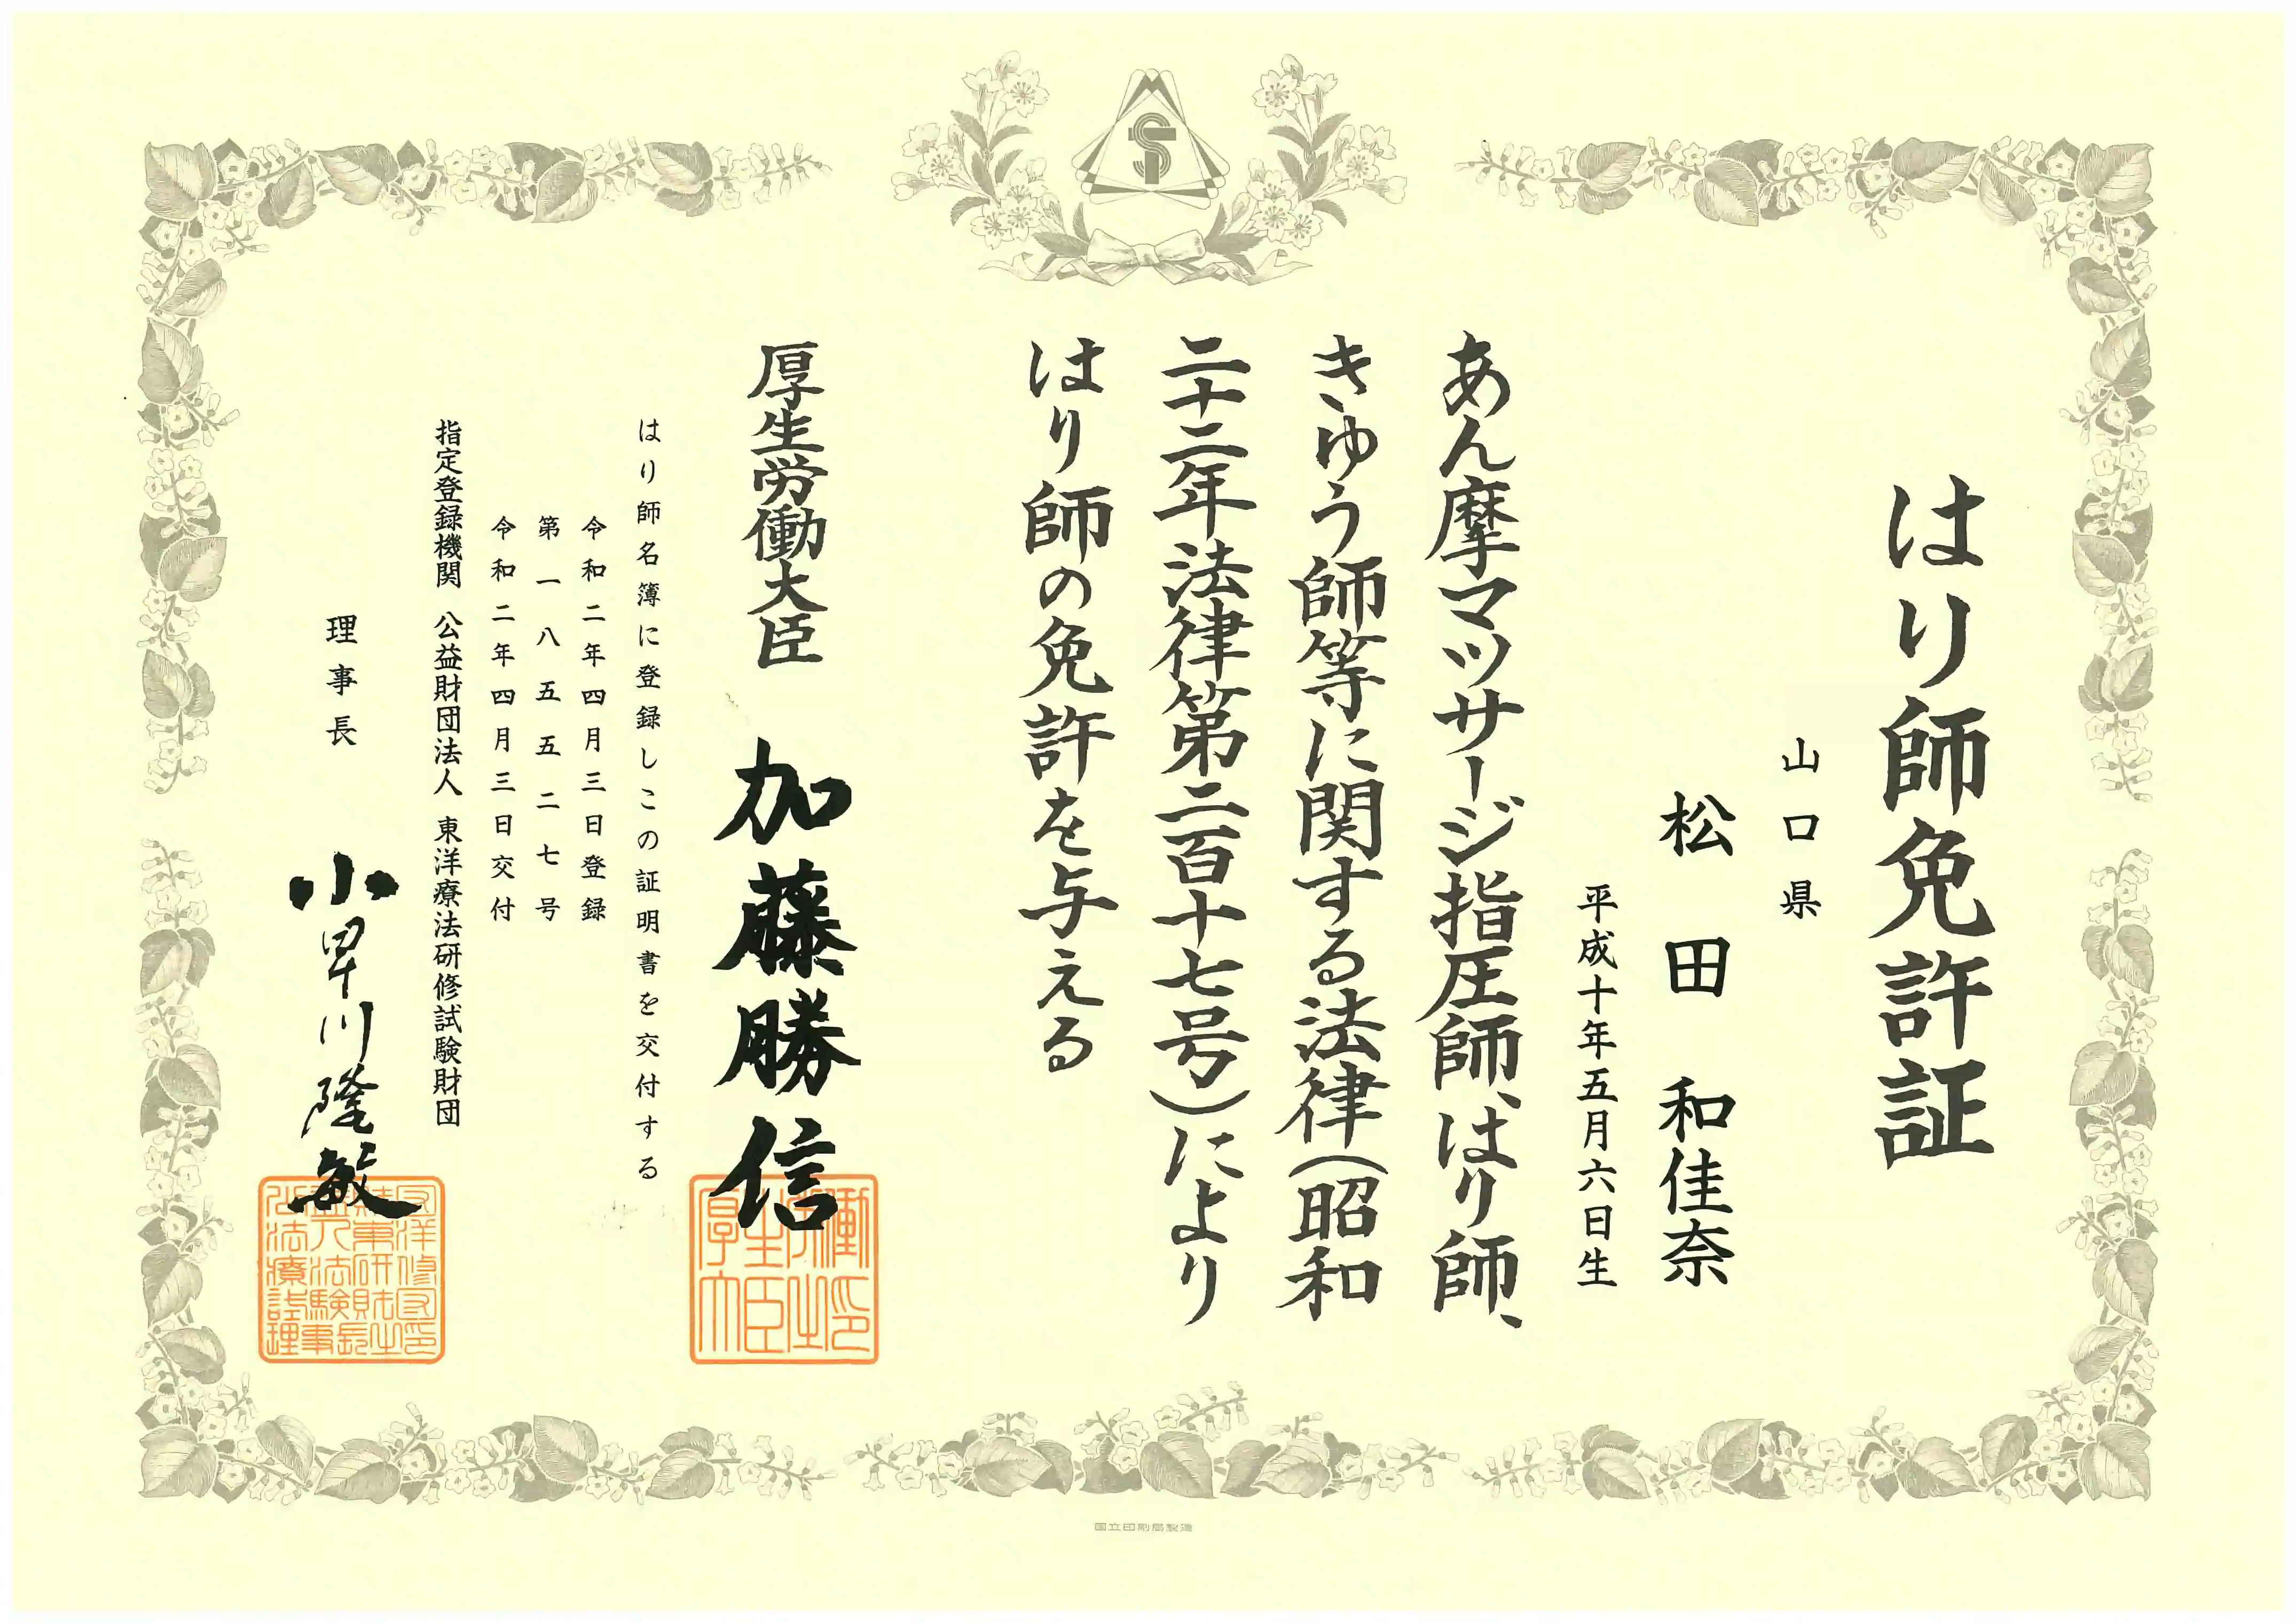 はり師免許証
山口県
松田 和佳奈
平成十年五月六日生
あん摩マツサージ指圧師、はり師、
きゆう師等に関する法律(昭和
二十二年法律第二百十七号)により
はり師の免許を与える
厚生労働大臣 加藤勝信
はり師名簿に登録しこの証明書を交付する
令和二年四月三日登録
第一八五五二七号
令和二年四月三日交付
指定登録機関 公益財団法人 東洋療法研修試験財団
理事長 小早川隆敏
国立印刷局製造